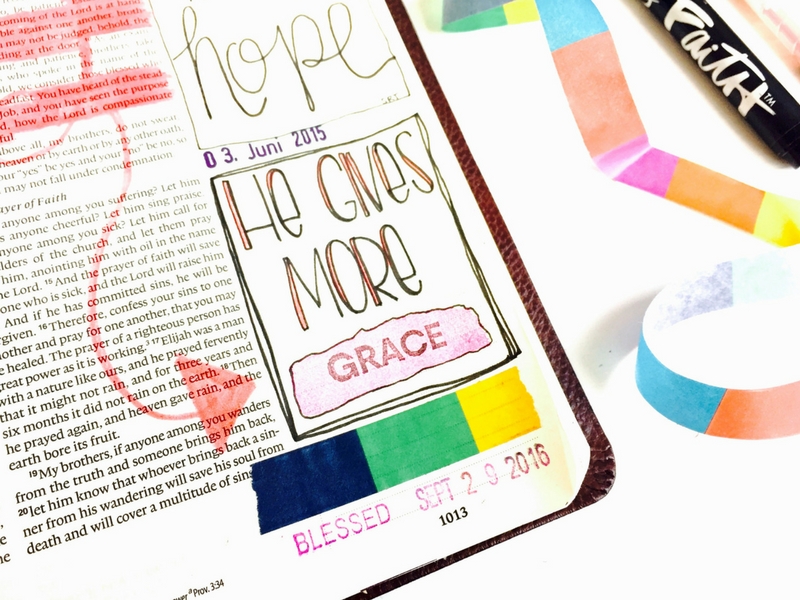 ming of the Lord is at hand.
ble against one another, brothers,
may not be judged; behold, the
ding at the door.
who spoke in the name
we consider those blessed who
steadfast. You have heard of the stead
Job, and you have seen the purpose
d, how the Lord is compassionate
ful
above all, my brothers, do not swear
heaven or by earth or by any other oath,
your "yes" be yes and your "no" be no, so
may not fall under condemnation.
ayer of Faith
anyone among you suffering? Let him
s anyone cheerful? Let him sing praise.
anyone among you sick? Let him call for
lders of the church, and let them pray
him, anointing him with oil in the name
he Lord. 15 And the prayer of faith will save
one who is sick, and the Lord will raise him
And if he has committed sins, he will be
given. 16 Therefore, confess your sins to one
nother and pray for one another, that you may
healed. The prayer of a righteous person has
great power as it is working. 17 Elijah was a man
with a nature like ours, and he prayed fervently
that it might not rain, and for three years and
six months it did not rain on the earth. Then
he prayed again, and heaven gave rain, and the
earth bore its fruit.
19 My brothers, if anyone among you wanders
from the truth and someone brings him back,
20 let him know that whoever brings back a sin-
ner from his wandering will save his soul from
death and will cover a multitude of sins
Prov. 3:34
hope
03. Juni 2015
He Gives
More
GRACE
BLESSED SEPT 29 2016
1013
FaitH™